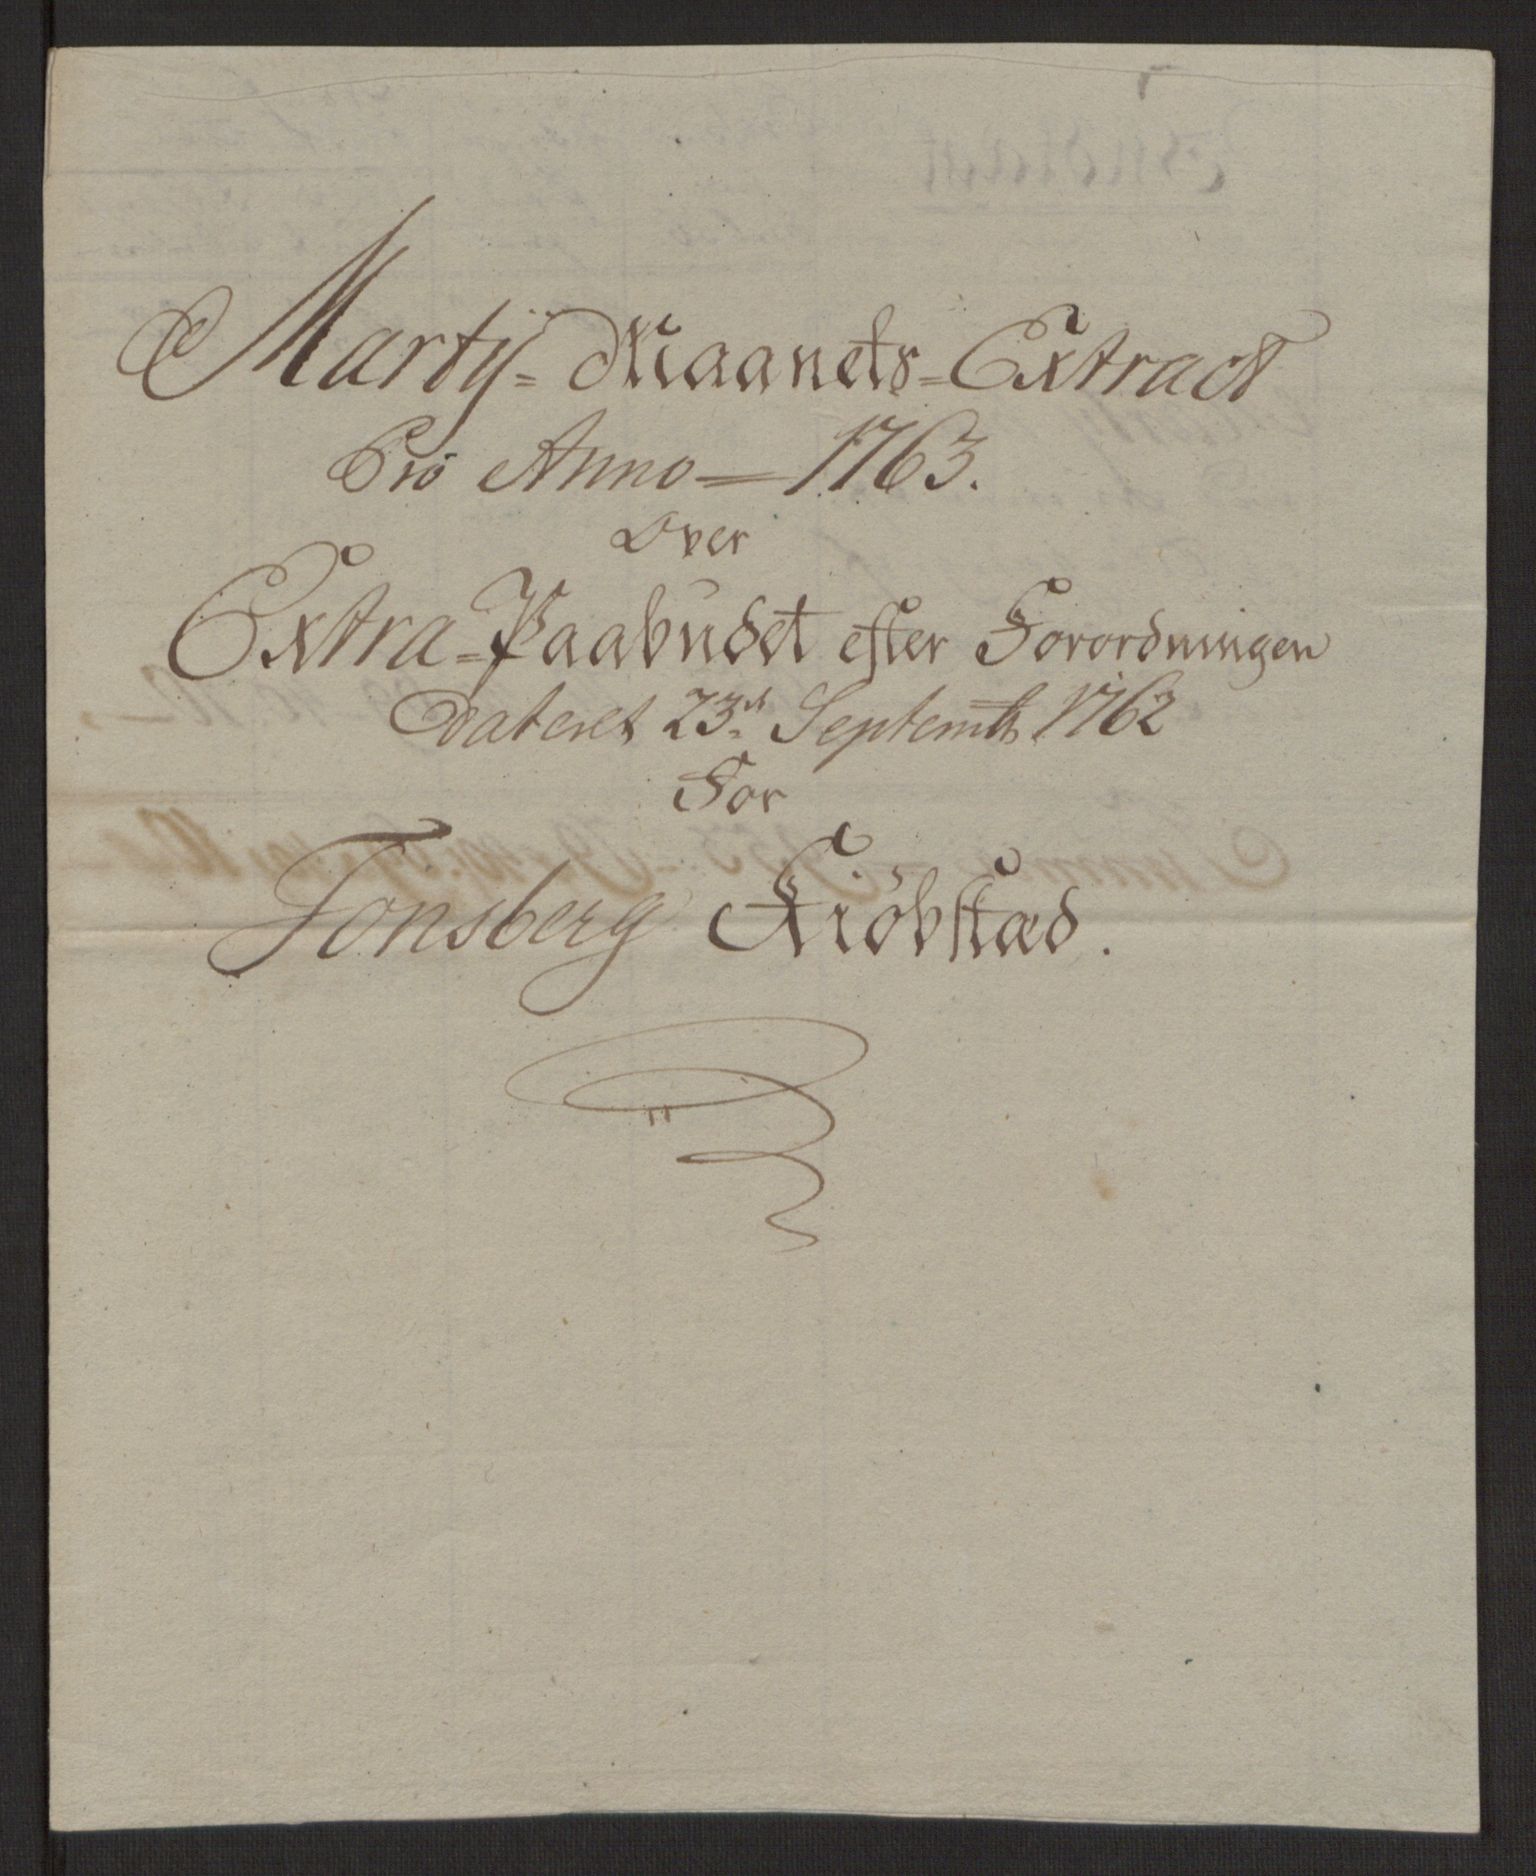 Martij= Maanets=Extract
Pro Anno=1763.
Over
Extra=Paabudet efter Forordningen
Dateret 23.de Septembr. 1762
For
Tonsberg Kiöbstæd.